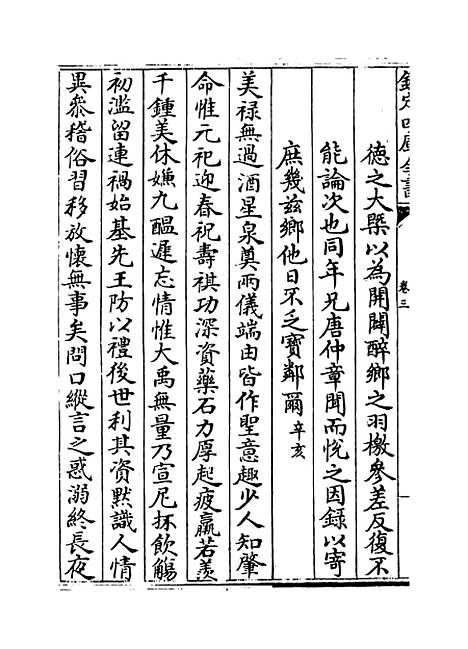 欽定四庫全書
卷三
德之大槩以為開闢醉鄉之羽檄參差反復不
能論次也同年兄唐仲章聞而悅之因錄以寄
庶幾兹鄉他日不乏寳鄰爾辛亥
美禄無過酒星泉奠兩儀端由皆作聖意趣少人知肇
命惟元祀迎春祝壽祺功深資藥石力厚起疲羸若羡
千鍾美休嫌九醖遲忘情惟大禹無量乃宣尼抔飲觴
初濫留連禍始基先王防以禮後世利其資黙識人情
異叅稽俗習移放懷無事矣問口縱言之惑溺終長夜